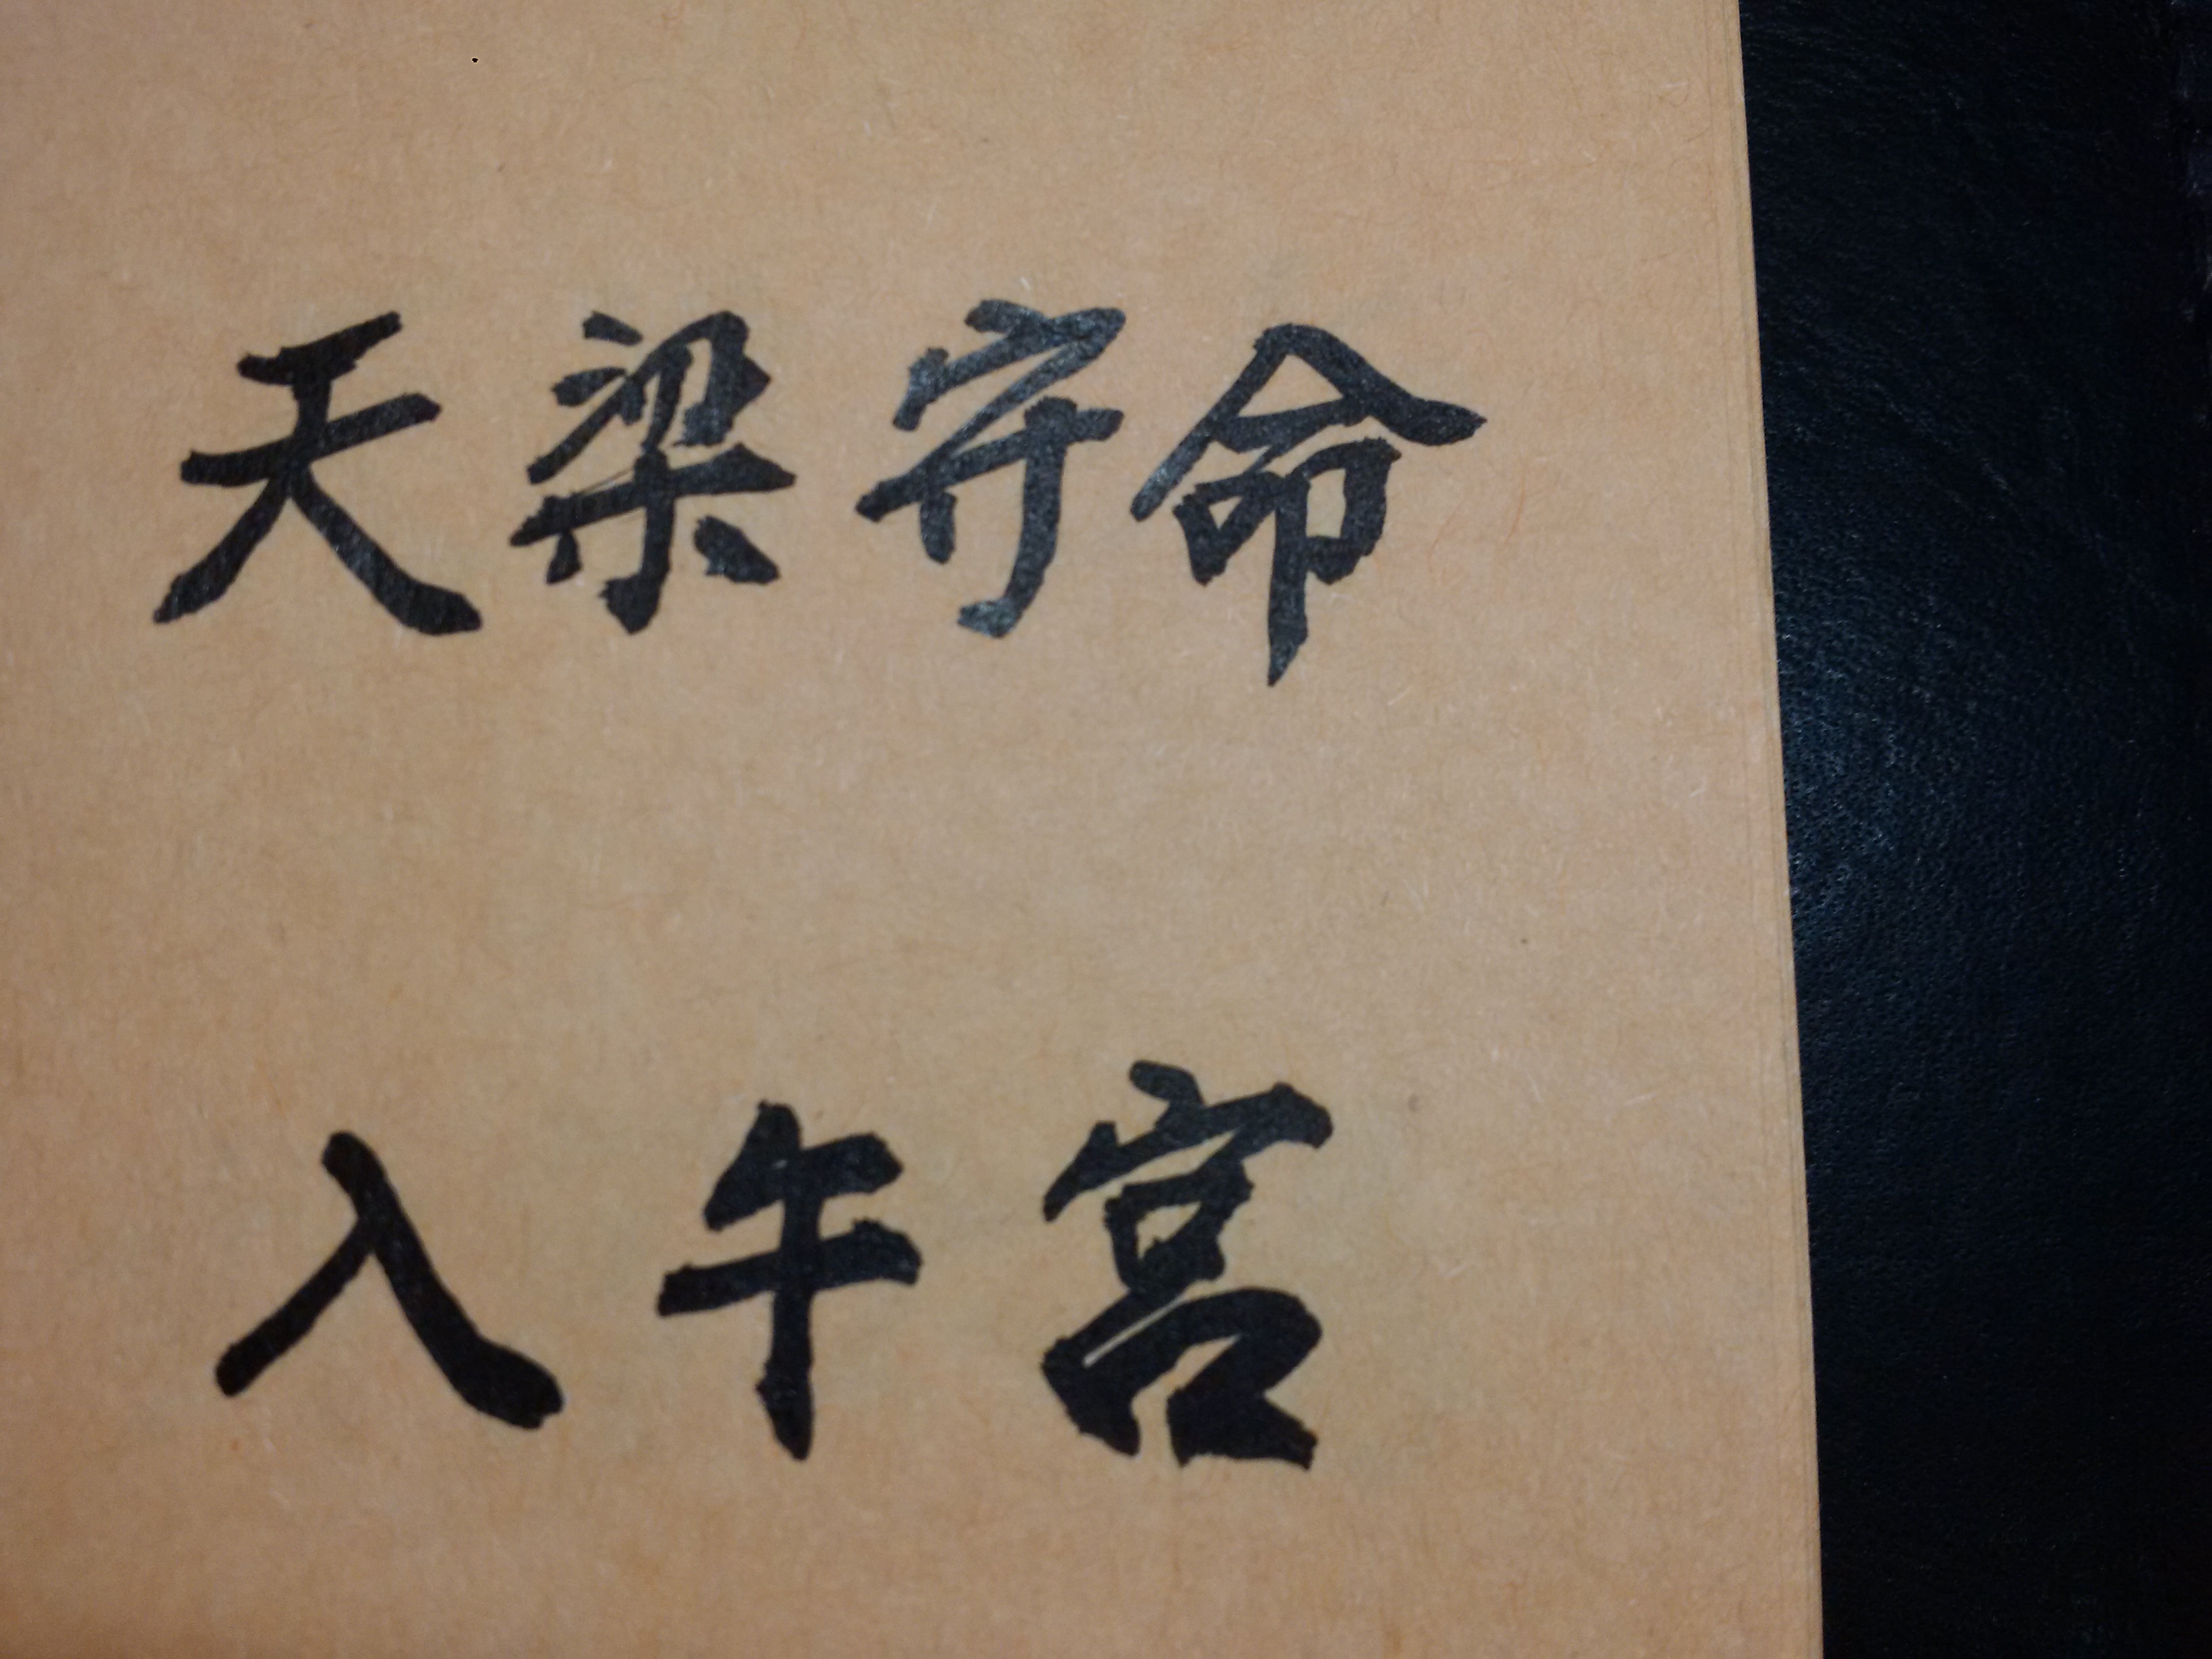 天梁守命
入午宫